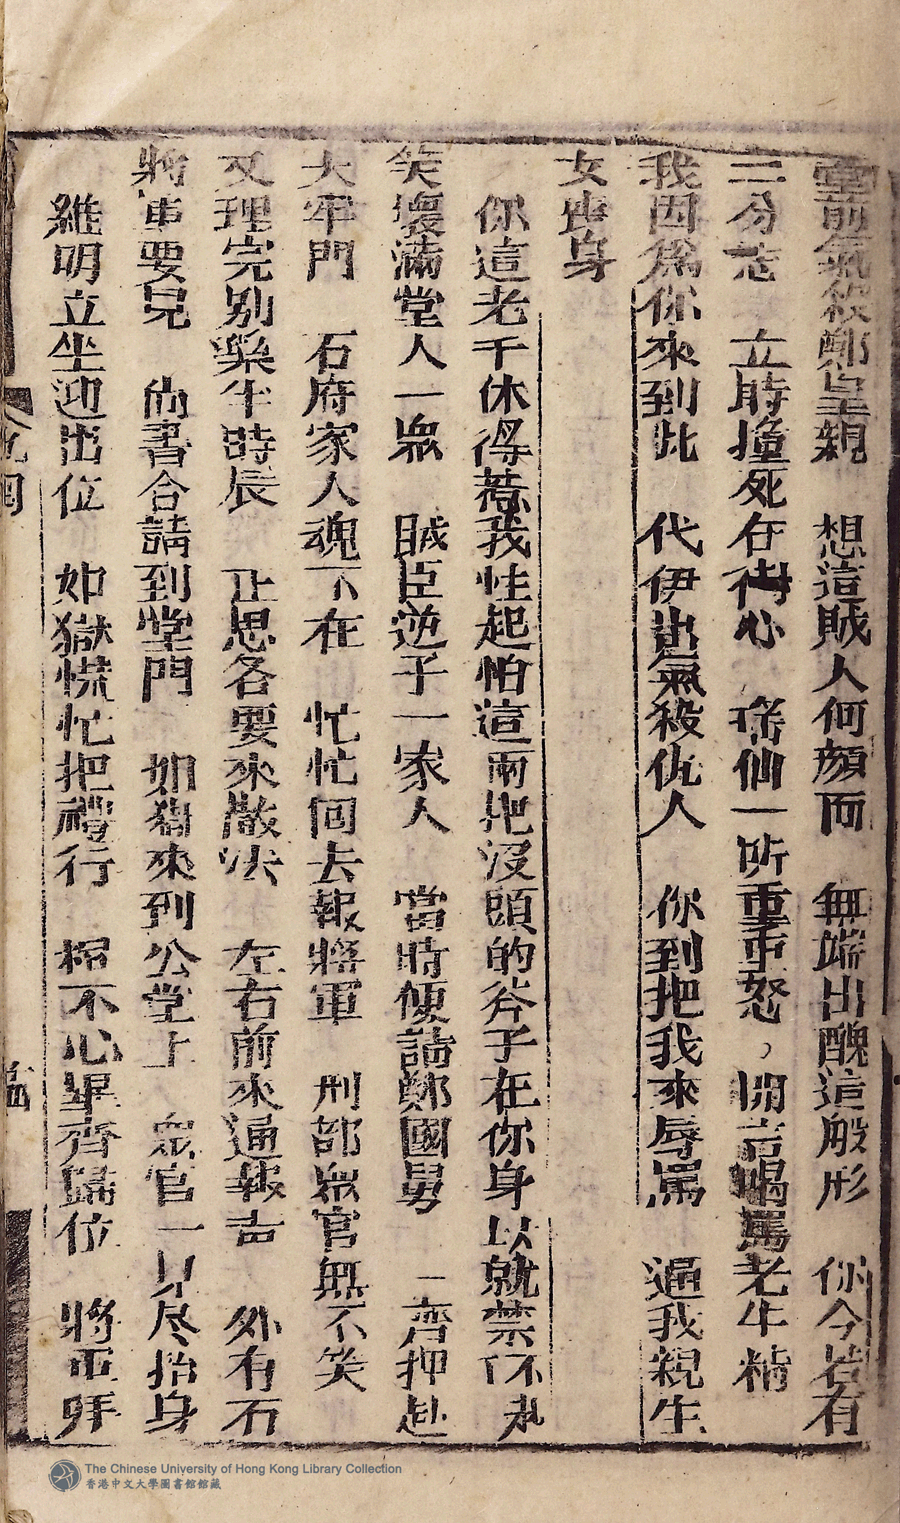 堂前氣殺鄭皇親　想這賊人何顏面　無端出醜這般形　你今若有
二分志　立時撞死在街心　瑤仙一听重重怒　開言喝罵老牛精
我因爲你來到此　代伊出氣殺仇人　你到把我來辱罵　逼我親生
女喪身
你這老千休得惹我性起怕這兩把沒頭的斧子在你身以就禁不
笑壞滿堂人一眾　賊臣逆子一家人　當時便請鄭國舅　一齊押赴
大牢門　石府家人魂不在　忙忙回去報將軍　刑部眾官無不笑
又理完別案牛時辰　正思各要來散法　左右前來通報声　外有石
將軍要見　尚書合請到堂門　如獄來到公堂上　眾官一見尽抬身
維明立坐迎出位　如獄慌忙把禮行　揖不心畢齊歸位　將軍拜
The Chinese University of Hong Kong Library Collection
香港中文大學圖書館館藏